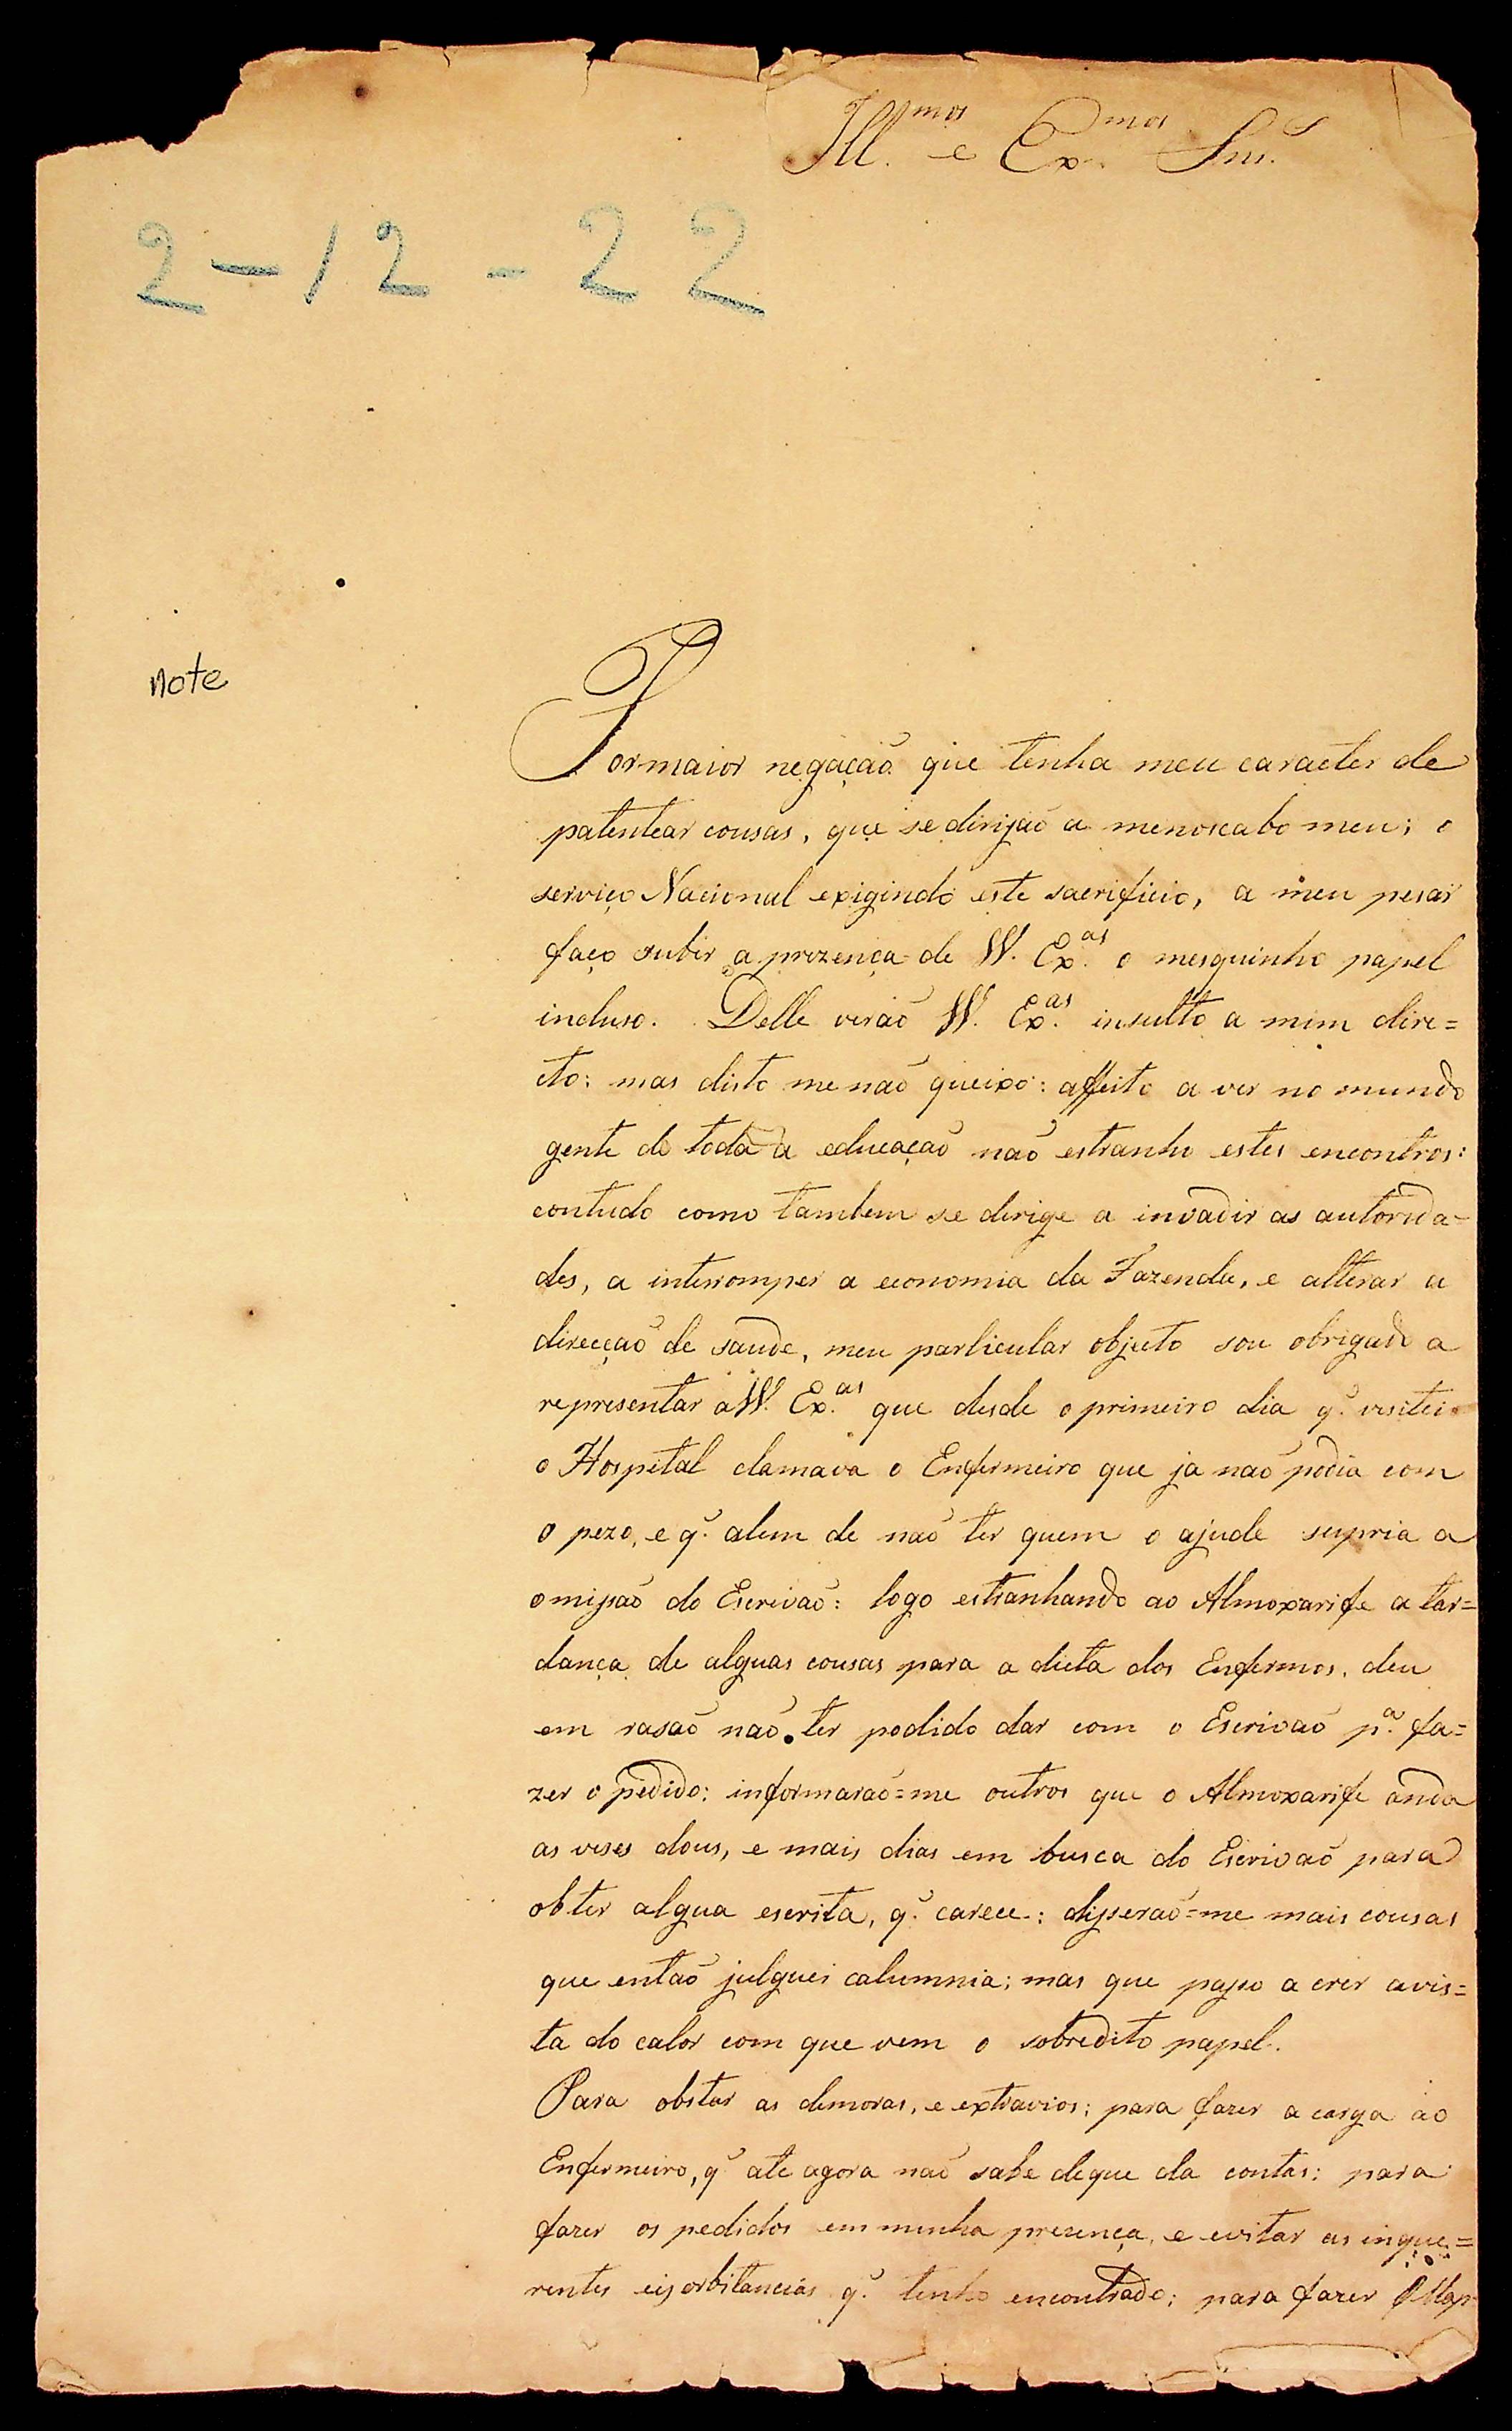 Ill.mos e Ex.mos Snrs.
2-12-22
note
Por maior negação que tenha meu caracter de
patentear cousas, que se dirijaõ a menoscabo meu; o
serviço Nacional exigindo este sacrificio, a meu pesar
faço subir a prezença de VV. Ex.as o mesquinho papel
incluso. Delle veraõ VV. Ex.as insulto a mim dire=
cto: mas disto me naõ queixo: affeito a ver no mundo
gente de toda a educaçaõ naõ estranho estes encontros:
contudo como tambem se derige a invadir as autorida-
des, a interromper a economia da Fazenda, e alterar a
direcçaõ de saude, meu particular objecto sou obrigado a
representar a VV. Ex.as que desde o primeiro dia q.̃ visitei
o Hospital clamava o Enfermeiro que ja naõ podia com
o pezo, e q.̃ alem de naõ ter quem o ajude supria a
omissaõ do Escrivaõ: logo estranhando ao Almoxarife a tar=
dança de alguas cousas para a dieta dos Enfermos, deu
em rasaõ naõ ter podido dar com o Escrivaõ p.a fa=
zer o pedido: informaraõ=me outros que o Almoxarife anda
as veses dous, e mais dias em busca do Escrivaõ para
obter algua escrita, q.̃ carece: disseraõ=me mais cousas
que entaõ julguei calumnia; mas que passo a crer avis=
ta do calor com que vem o sobredito papel.
Para obstar as demoras, e extravios; para fazer a carga ao
Enfermeiro, q̃ ate agora naõ sabe deque da contas: para
fazer os pedidos em minha presença, e evitar as
q.̃ tenho encontrado; para fazer